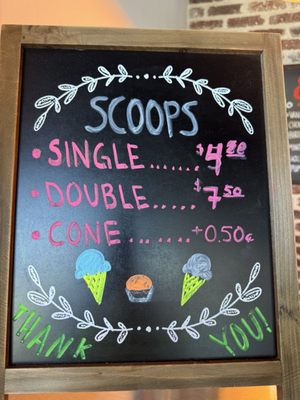 SCOOPS
• SINGLE...... $4.80
• DOUBLE..... $7.50
• CONE....... +0.50¢
THANK YOU!